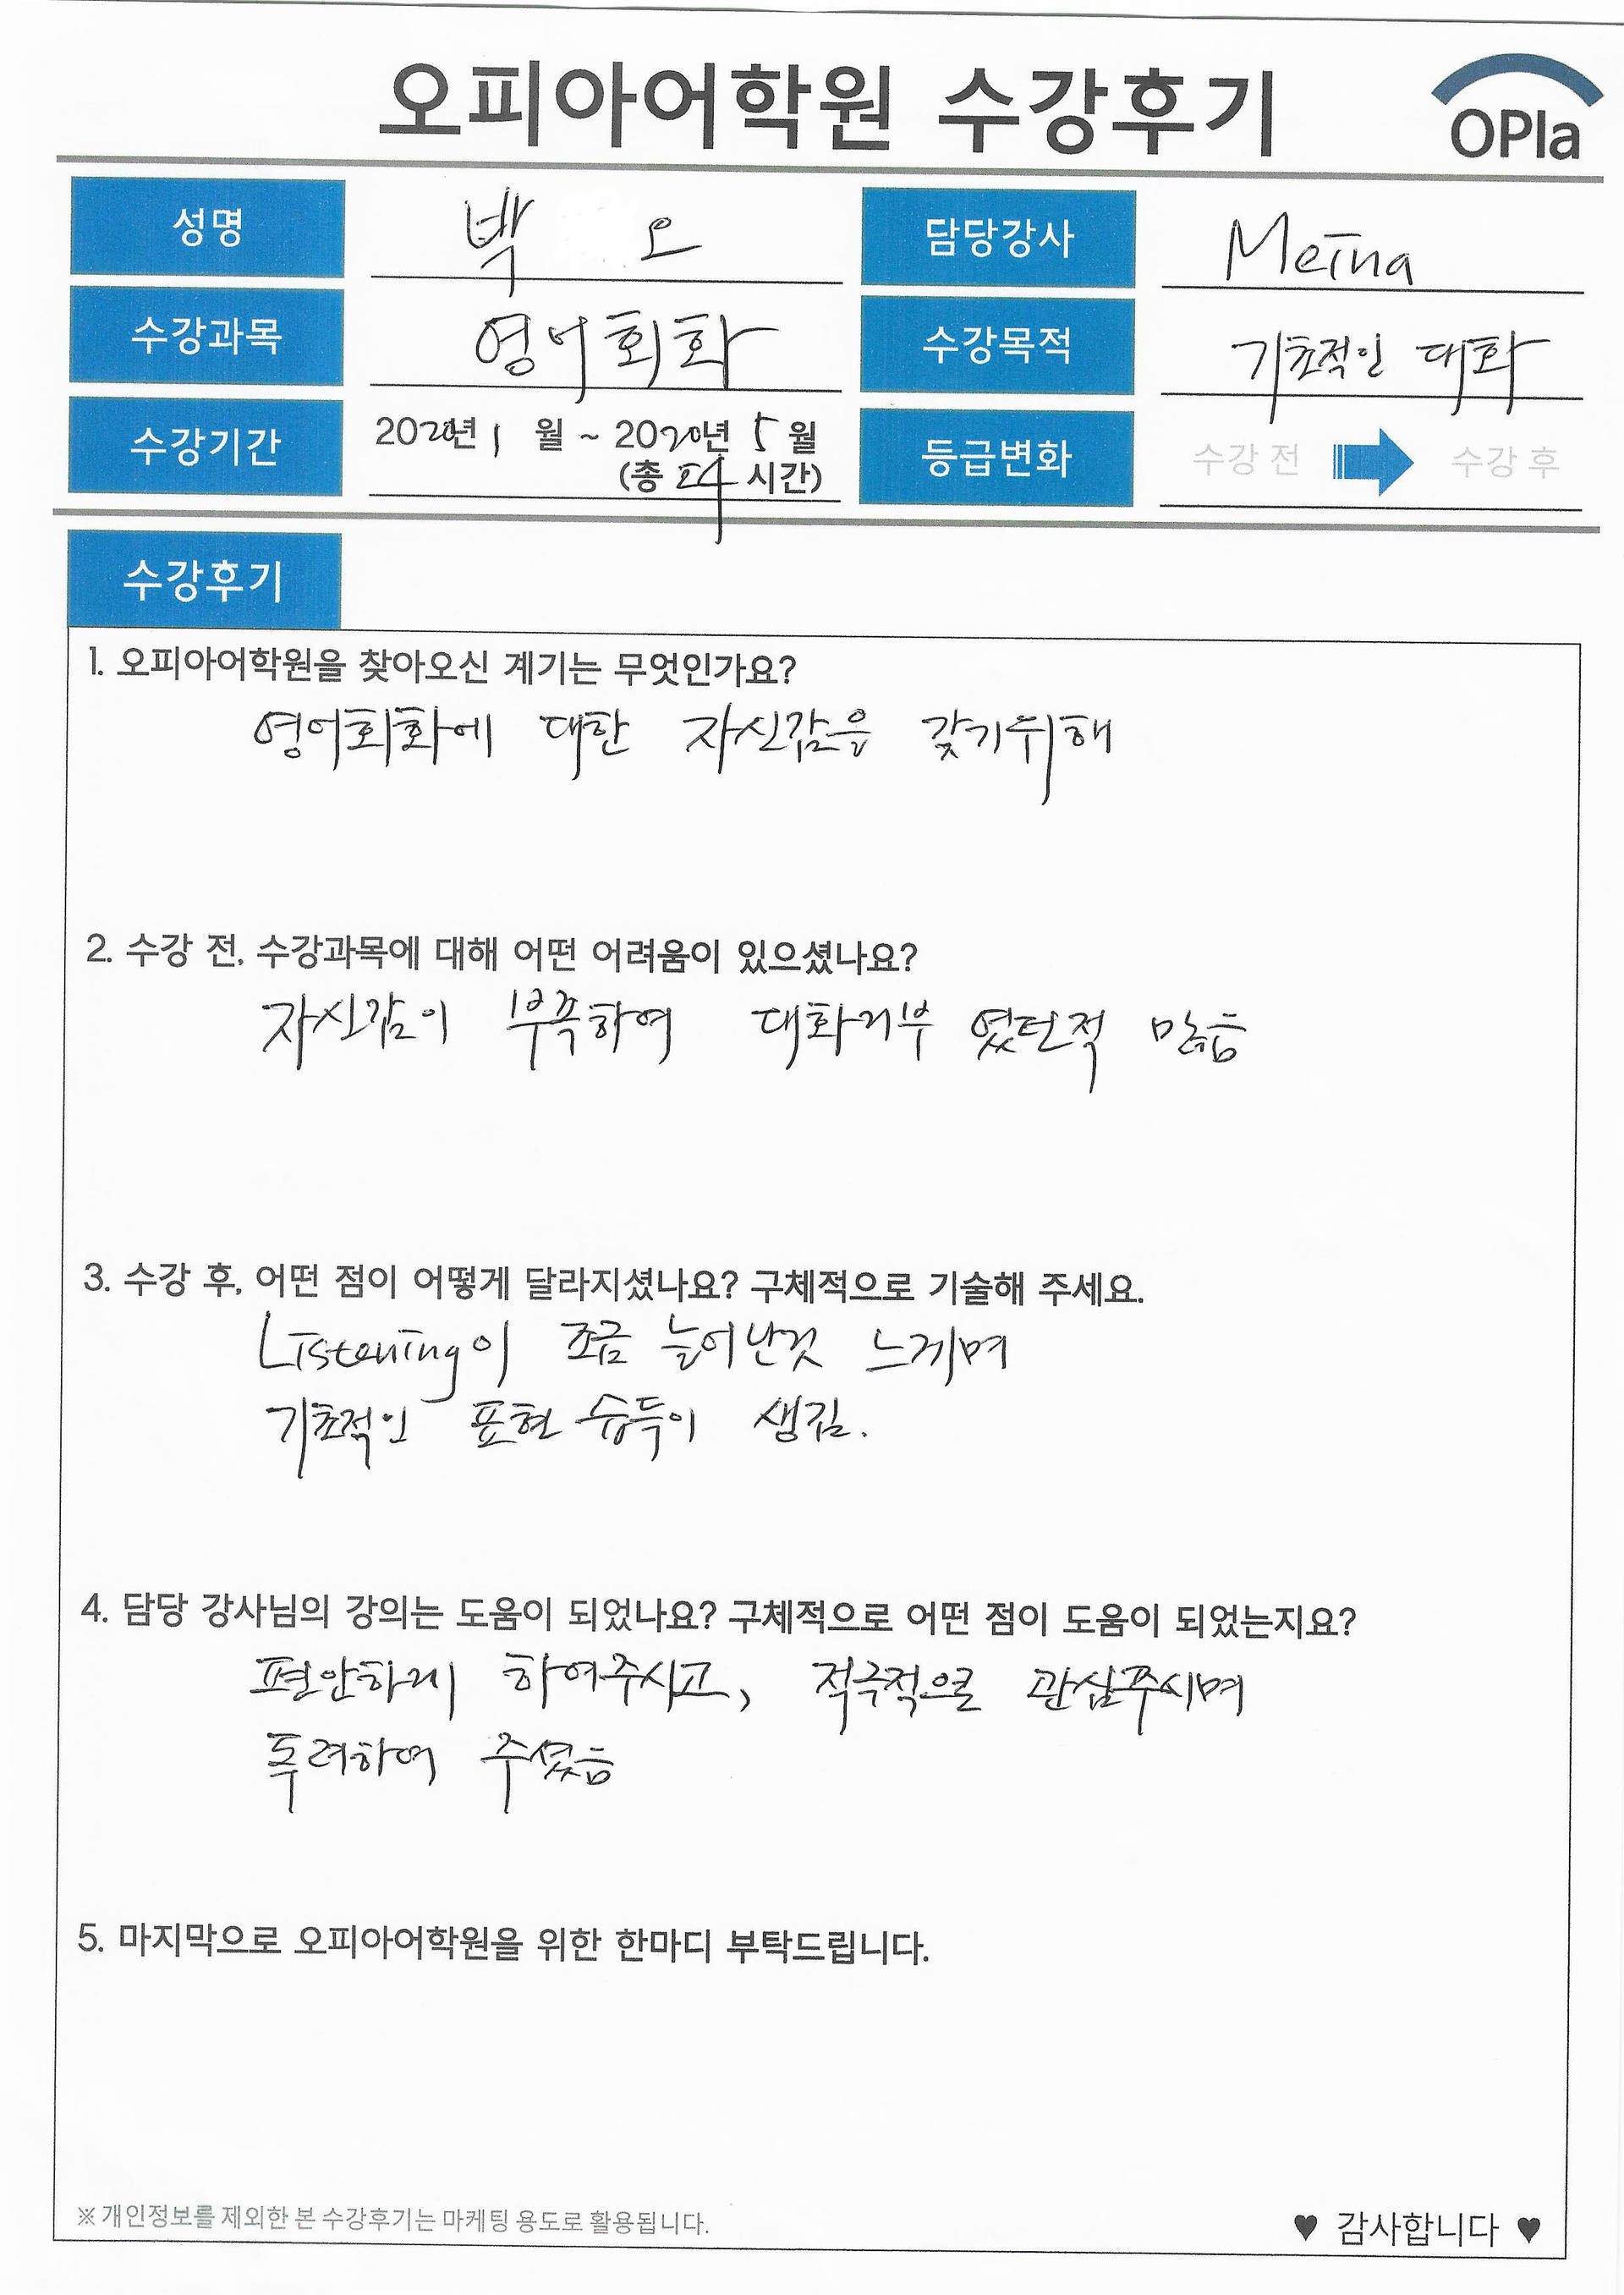 오피아어학원 수강후기
OPIa
성명 박 오 담당강사 Meina
수강과목 영어회화 수강목적 기초적인 대화
수강기간 2020년 1 월 ~ 2020년 5 월 등급변화 수강 전 수강 후
(총 24 시간)
수강후기
1. 오피아어학원을 찾아오신 계기는 무엇인가요?
영어회화에 대한 자신감을 갖기위해
2. 수강 전, 수강과목에 대해 어떤 어려움이 있으셨나요?
자신감이 부족하여 대화거부 였던적 많음
3. 수강 후, 어떤 점이 어떻게 달라지셨나요? 구체적으로 기술해 주세요.
Listening이 조금 늘어난것 느게며
기초적인 표현 습득이 생김.
4. 담당 강사님의 강의는 도움이 되었나요? 구체적으로 어떤 점이 도움이 되었는지요?
편안하게 하여주시고, 적극적으로 관심주시며
독려하여 주셨음
5. 마지막으로 오피아어학원을 위한 한마디 부탁드립니다.
※ 개인정보를 제외한 본 수강후기는 마케팅 용도로 활용됩니다.
♥ 감사합니다 ♥